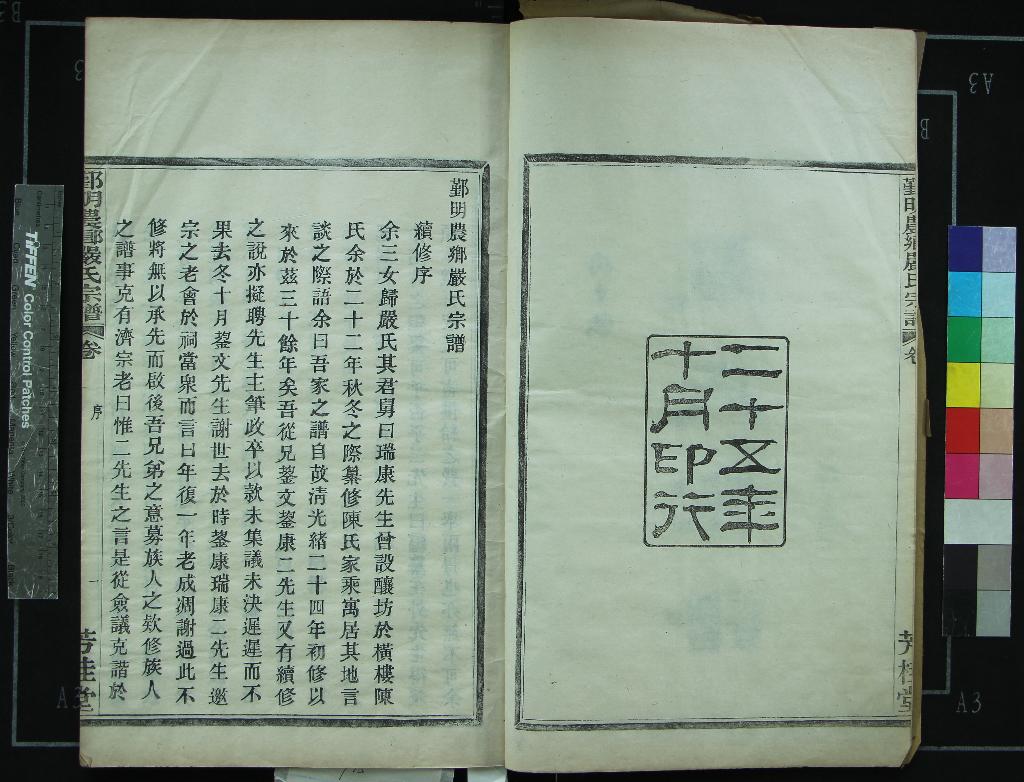 二十五年
十月印行
鄞明農鄉嚴氏宗譜
卷
芳桂堂
鄞明農鄉嚴氏宗譜
續修序
余三女歸嚴氏其君舅曰瑞康先生曾設釀坊於橫樓陳
氏余於二十二年秋冬之際纂修陳氏家乘寓居其地言
談之際語余曰吾家之譜自故清光緒二十四年初修以
來於茲三十餘年矣吾從兄蓥文蓥康二先生又有續修
之說亦擬聘先生主筆政卒以款未集議未決遲遲而不
果去冬十月蓥文先生謝世去於時蓥康瑞康二先生邀
宗之老會於祠當衆而言曰年復一年老成凋謝過此不
修將無以承先而啟後吾兄弟之意募族人之欵修族人
之譜事克有濟宗老曰惟二先生之言是從僉議克諧於
鄞明農鄉嚴氏宗譜
卷
序
一
芳桂堂
TIFFEN Color Control Patches
A3
A3
A3
B